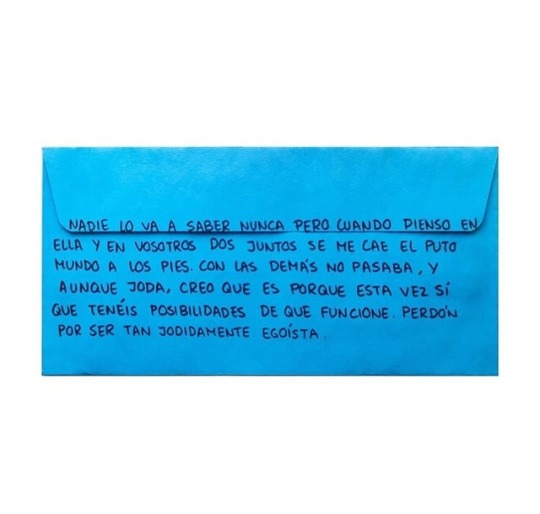 NADIE LO VA A SABER NUNCA PERO CUANDO PIENSO EN
ELLA Y EN VOSOTROS DOS JUNTOS SE ME CAE EL PUTO
MUNDO A LOS PIES. CON LAS DEMÁS NO PASABA, Y
AUNQUE JODA, CREO QUE ES PORQUE ESTA VEZ SÍ
QUE TENÉIS POSIBILIDADES DE QUE FUNCIONE. PERDÓN
POR SER TAN JODIDAMENTE EGOÍSTA.